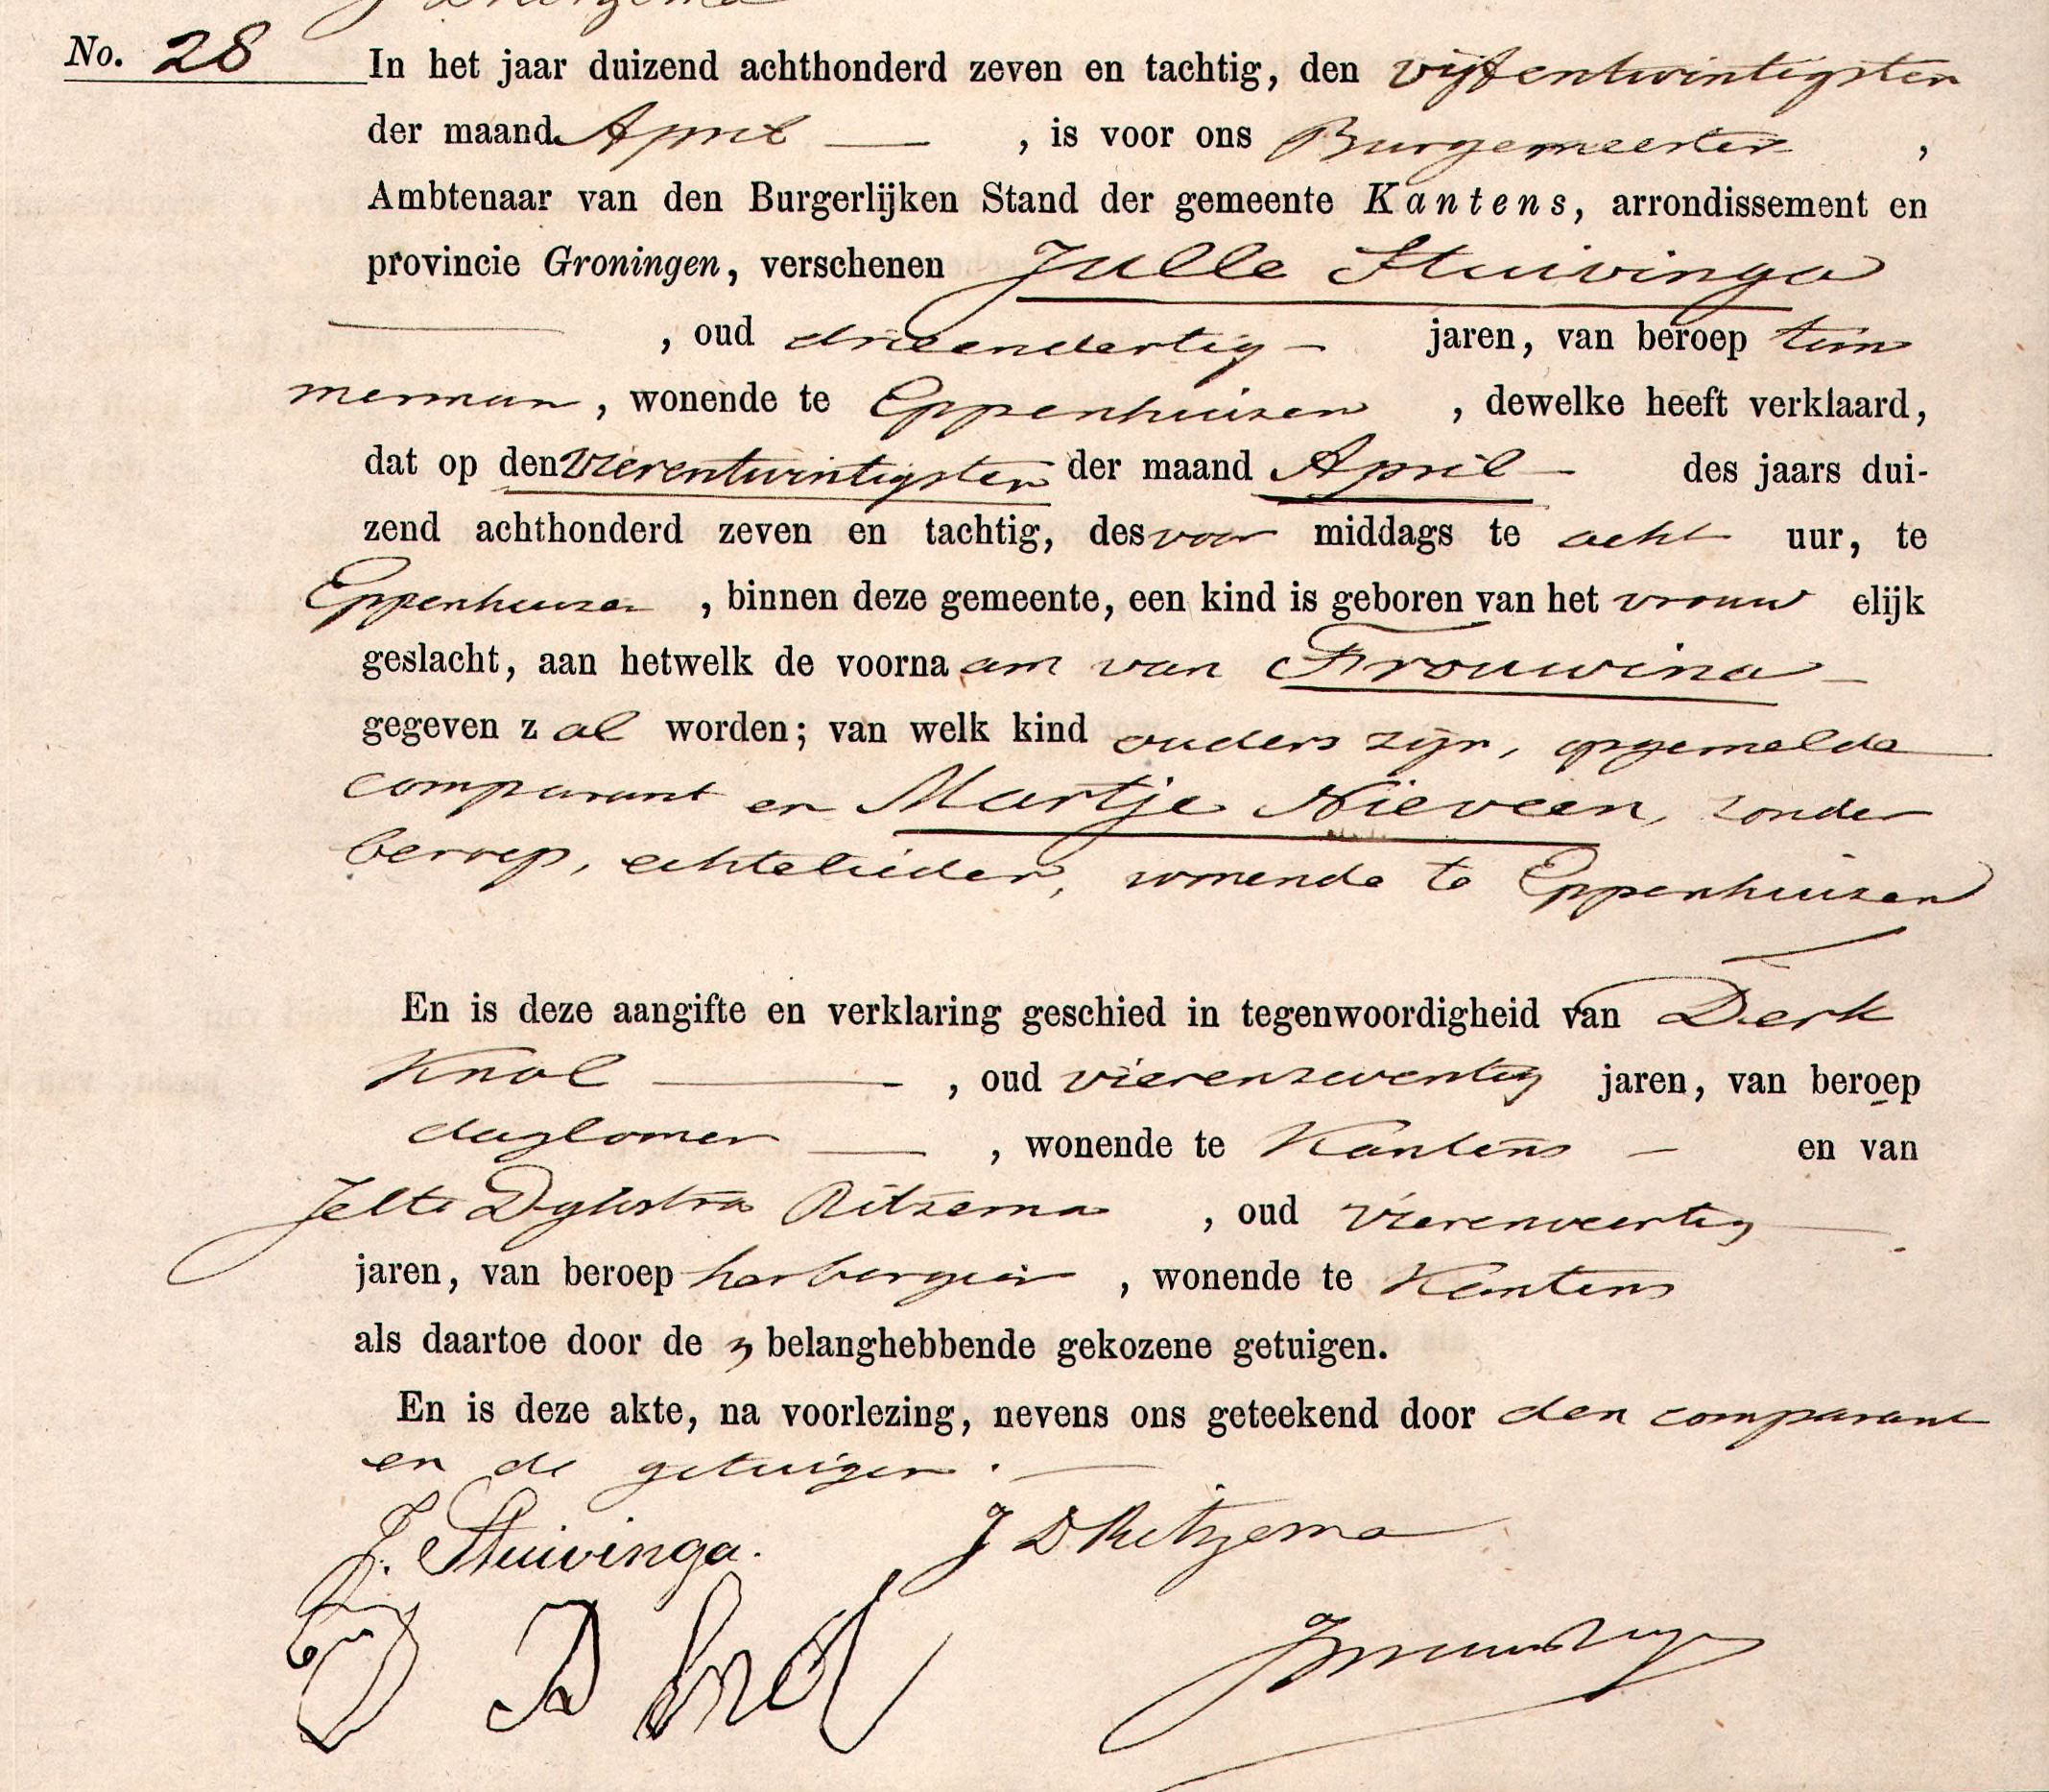 No. 28 In het jaar duizend achthonderd zeven en tachtig, den vijfentwintigsten
der maand April — , is voor ons Burgemeester ,
Ambtenaar van den Burgerlijken Stand der gemeente Kantens, arrondissement en
provincie Groningen, verschenen Julle Stuivinga
— , oud drieendertig — jaren, van beroep tim
merman , wonende te Eppenhuizen , dewelke heeft verklaard,
dat op den vierentwintigsten der maand April — des jaars dui-
zend achthonderd zeven en tachtig, des voor middags te acht uur, te
Eppenhuizen , binnen deze gemeente, een kind is geboren van het vrouw elijk
geslacht, aan hetwelk de voorna am van Frouwina —
gegeven z al worden; van welk kind ouders zijn, opgemelde
comparant en Martje Nieveen, zonder
beroep, echtelieden, wonende te Eppenhuizen
En is deze aangifte en verklaring geschied in tegenwoordigheid van Derk
Knol — , oud vierenzeventig jaren, van beroep
daglooner — , wonende te Kantens — en van
Jelte Dijkstra Ritzema , oud vierenveertig —
jaren, van beroep herbergier , wonende te Kantens
als daartoe door de n belanghebbende gekozene getuigen.
En is deze akte, na voorlezing, nevens ons geteekend door den comparant
en de getuigen. —
J. Stuivinga. J D Ritzema
D Knol